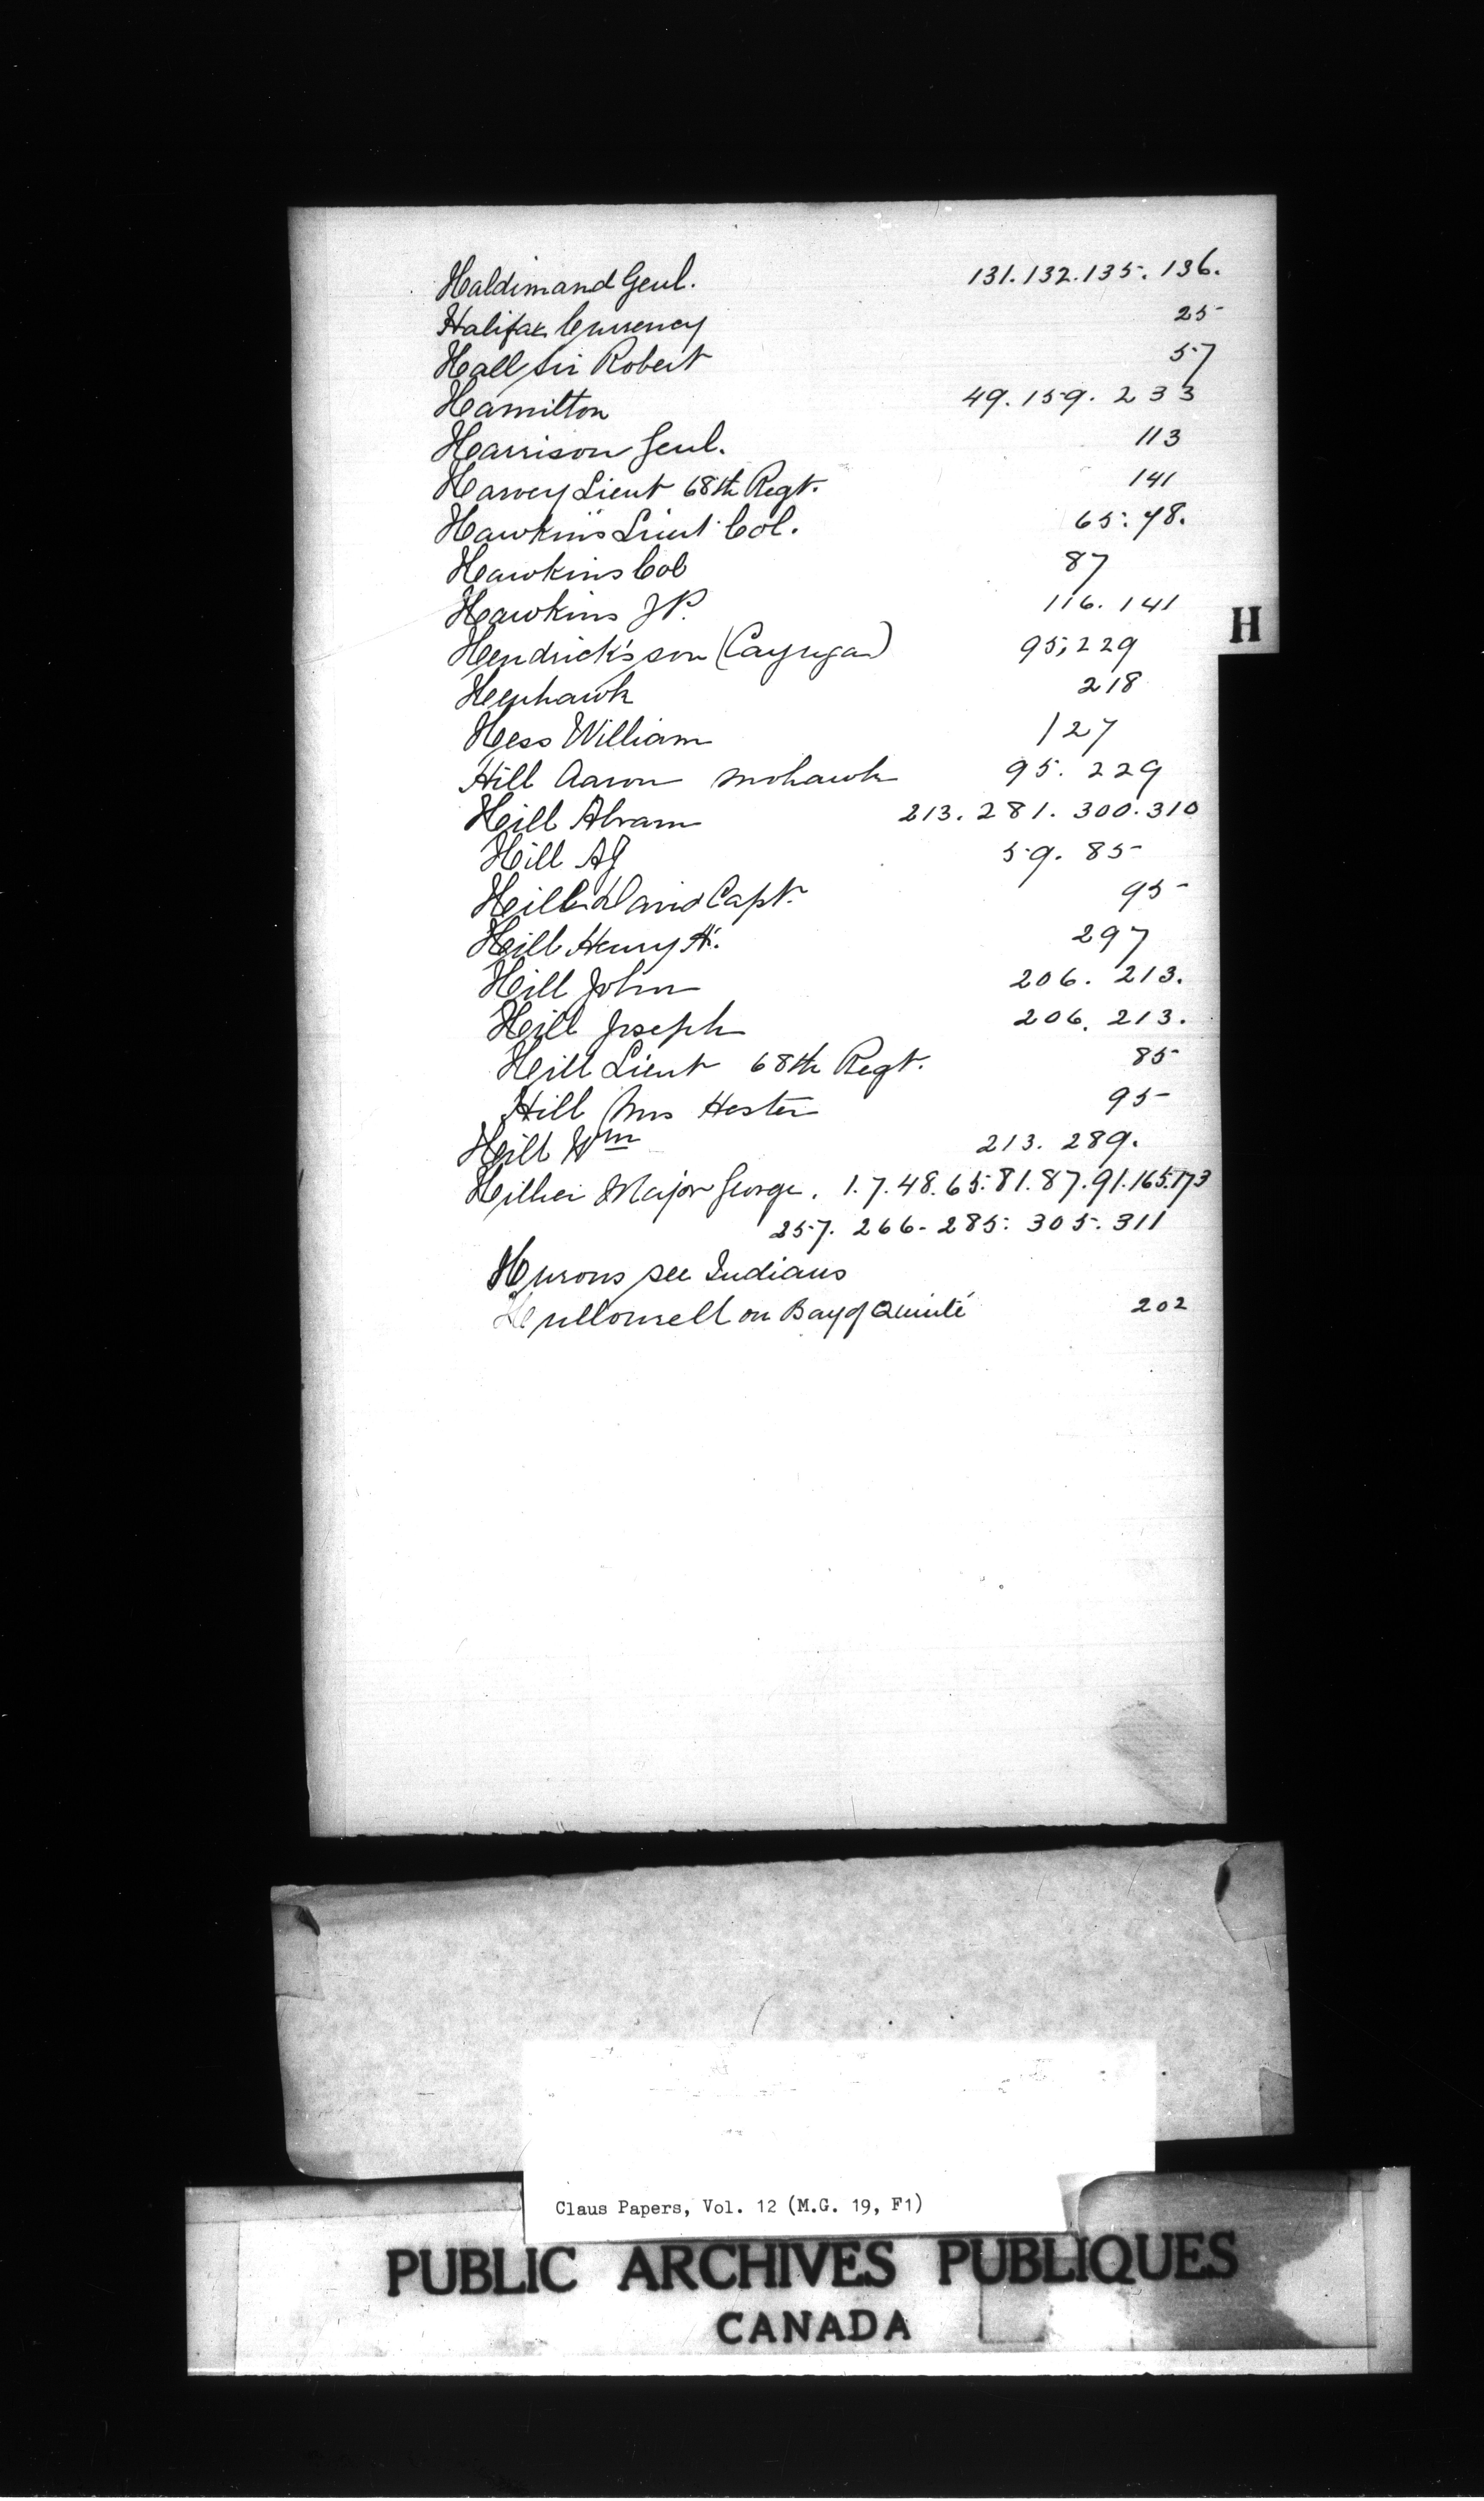 Haldimand Genl. 131. 132. 135. 136.
Halifax Currency 25
Hall Sir Robert 57
Hamilton 49. 159. 233
Harrison Genl. 113
Harvey Lieut 68th Regt. 141
Hawkins Lieut Col. 65. 78.
Hawkins Col 87
Hawkins JP. 116. 141
H
Hendrick's son (Cayuga) 95, 229
Henhawk 218
Hess William 127
Hill Aaron Mohawk 95. 229
Hill Abram 213. 281. 300. 310
Hill AG 59. 85
Hill David Capt. 95
Hill Henry A. 297
Hill John 206. 213.
Hill Joseph 206. 213.
Hill Lieut 68th Regt. 85
Hill Mrs Hester 95
Hill Wm 213. 289.
Hillier Major George. 1. 7. 48. 65. 81. 87. 91. 165. 173
257. 266. 285. 305. 311
Hurons see Indians
on Bay of Quinté 202
Claus Papers, Vol. 12 (M.G. 19, F1)
PUBLIC ARCHIVES PUBLIQUES
CANADA